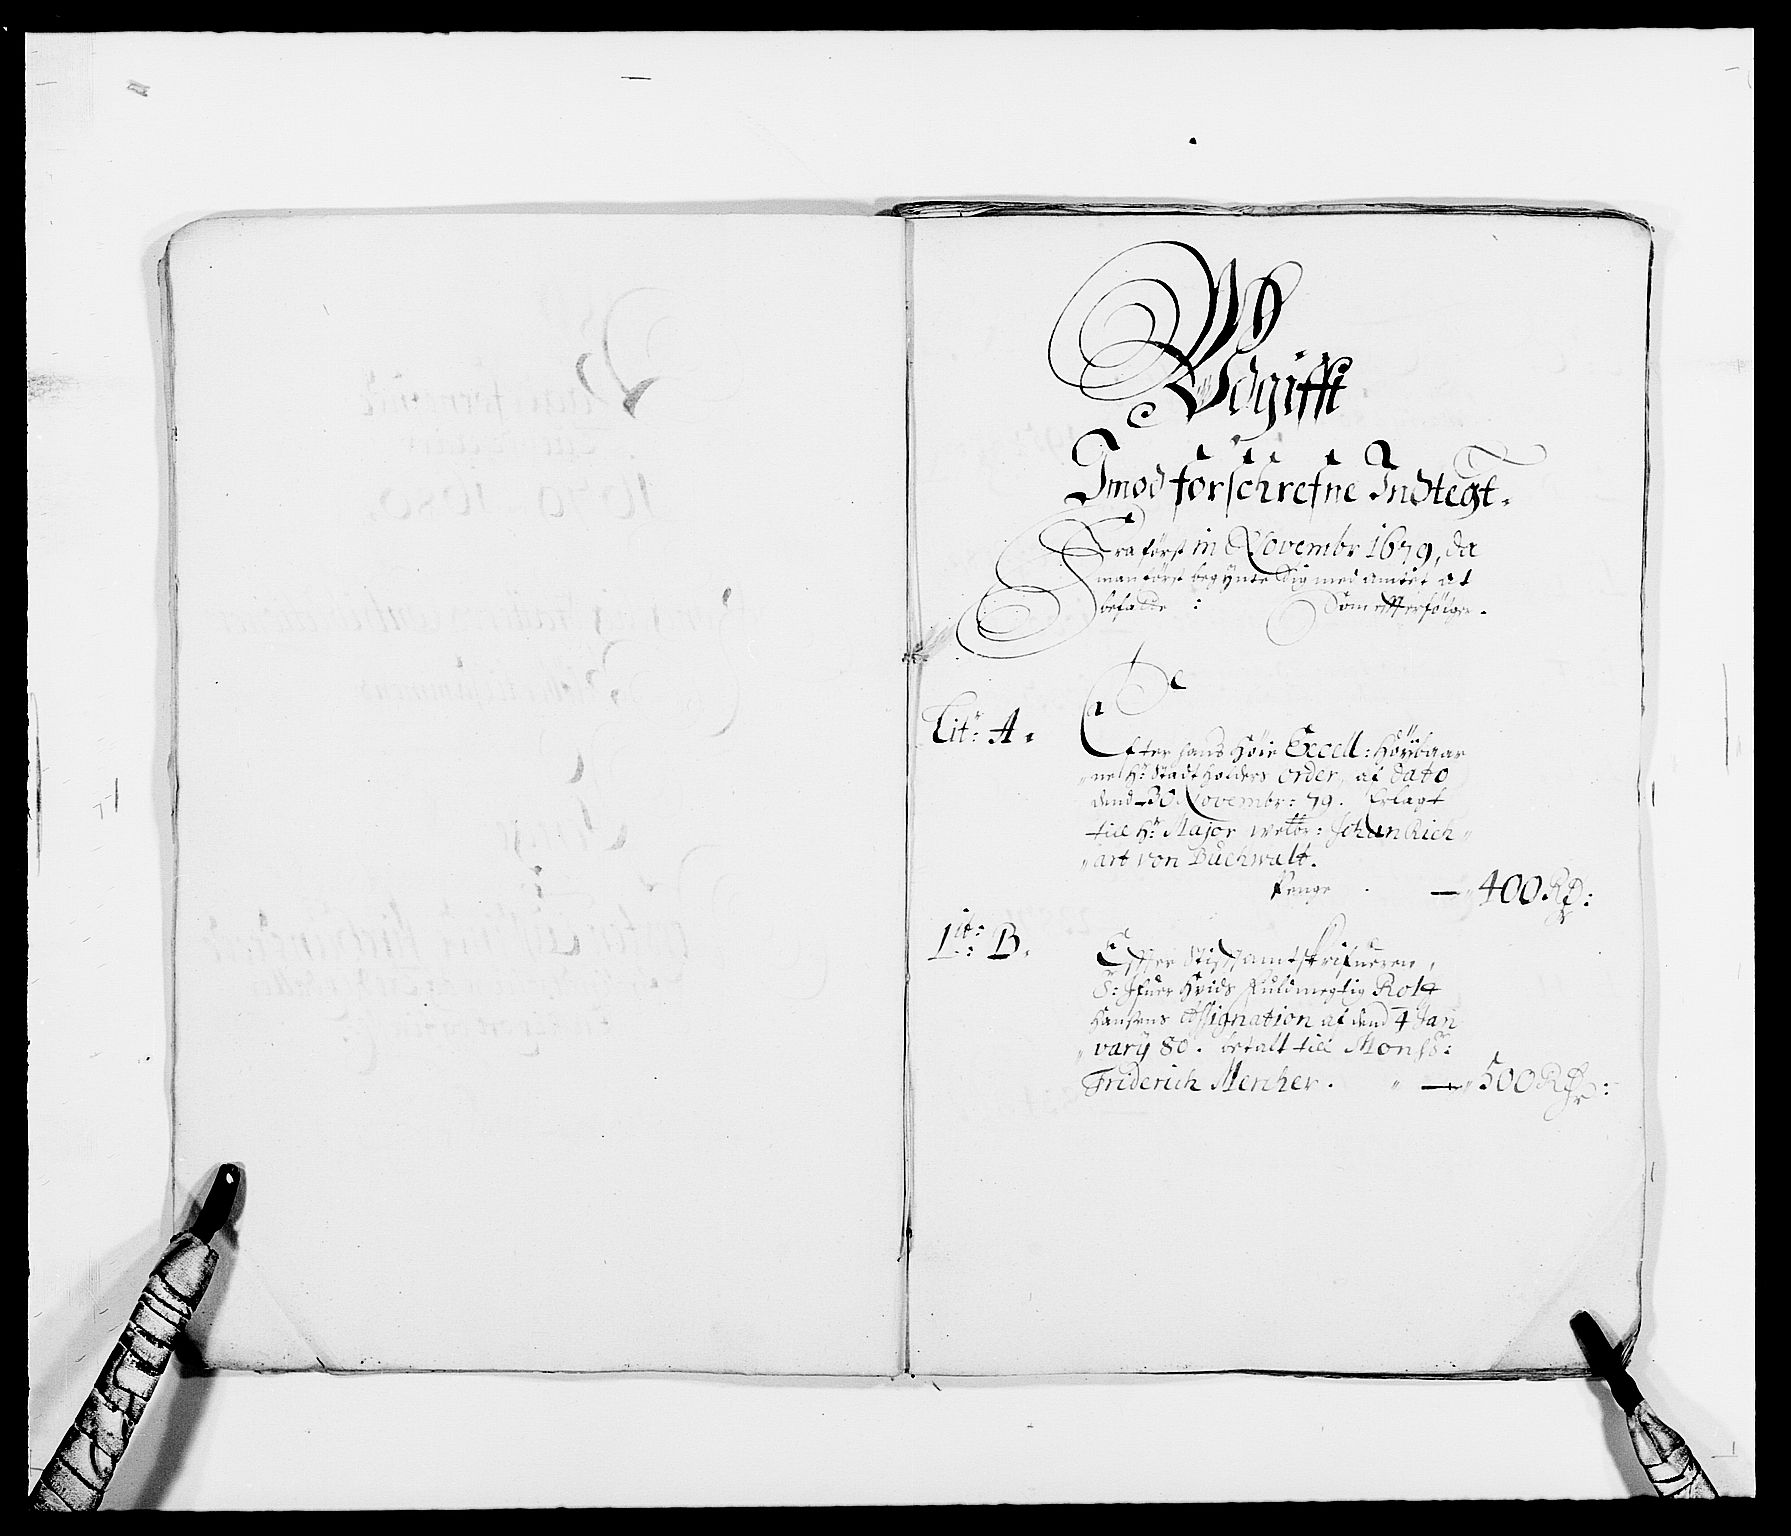 Udgifft
Imod forschrefne Indtegt.
Fra først in Novembr 1679, da
man først begÿnte Sig med amtet at
befatte : Som effterfølger.
Litr: A.
Efter hans Höie Excell: Höÿbaar
ne Hr Stadtholders order, af dato
dend 30 Novembr: 79. Erlagt
till Hr Major welbr: Johan Rich
art von Buchwalt.
Penge — 400 Rdr:
Lit: B.
Effter Stifftsamtskrifueren,
S: Ifuer Hvids Fuldmegtig Rolf
Hansens Assignation af dend 4 Jan
varÿ 80. betalt till Monsr:
Friderich Mercher. — 500 Rdr: